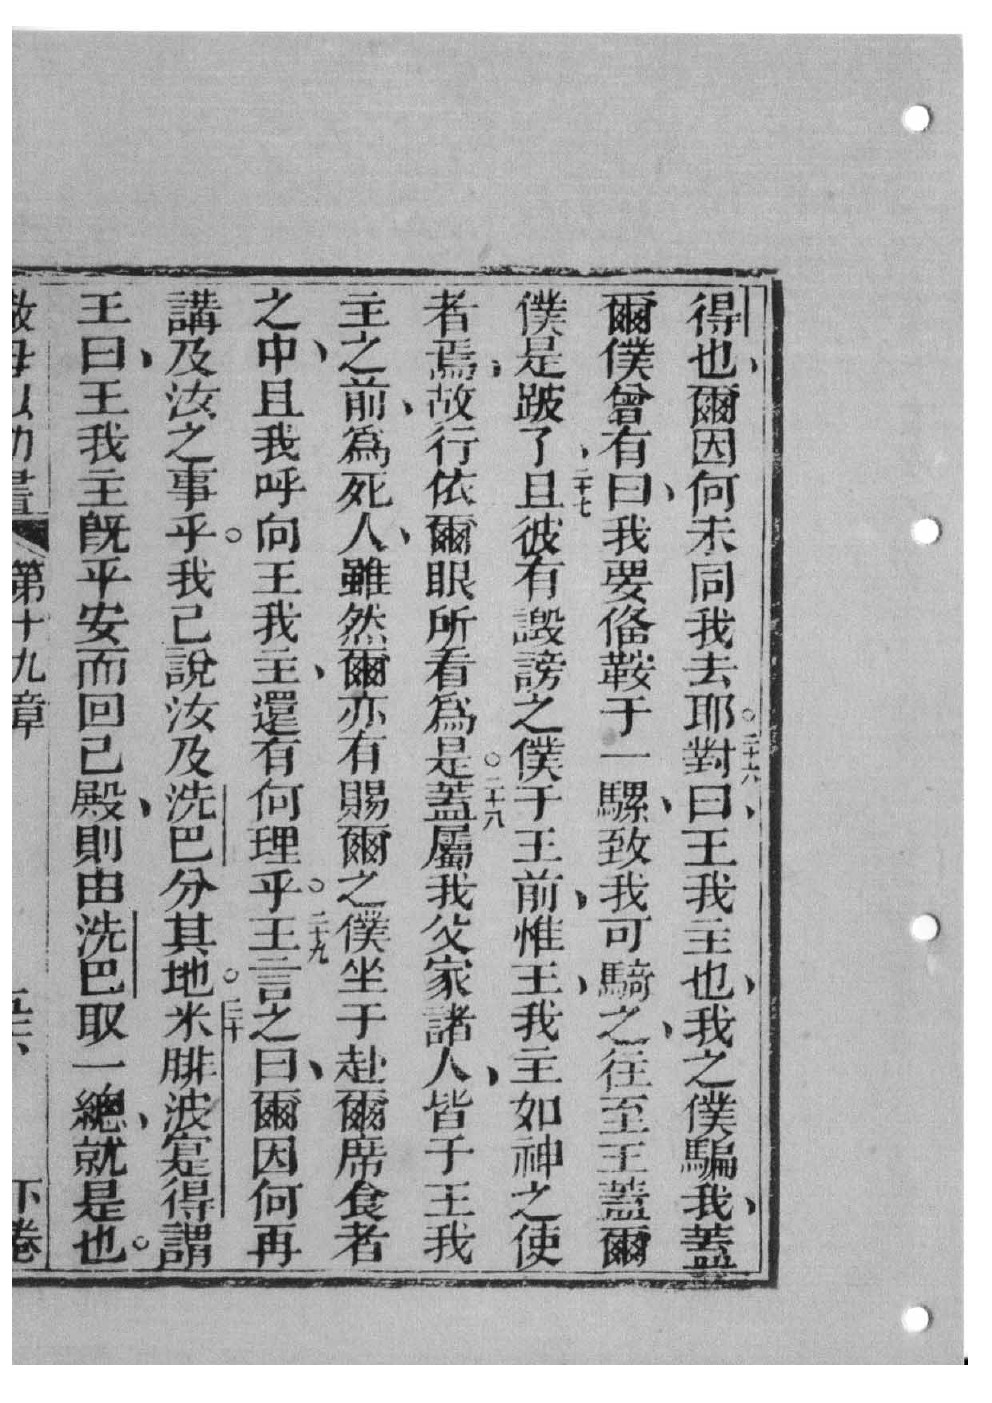 得也、爾因何未同我去耶。二十六對曰、王我主也、我之僕騙我、蓋
爾僕曾有曰、我要俻鞍于一騾、致我可騎之、往至王蓋爾
僕是跛了、二十七且彼有譭謗之僕于王前、惟王、我主如神之使
者焉、故行依爾眼所看為是。二十八蓋屬我父家諸人、皆于王我
主之前、為死人、雖然爾亦有賜爾之僕坐于赴爾席食者
之中、且我呼向王我主、還有何理乎。二十九王言之曰、爾因何再
講及汝之事乎。我已說汝及洗巴分其地。三十米腓波寔得謂
王曰、王我主既平安而回已殿、則由洗巴取一總、就是也。
撒母以勒書 第十九章 下卷